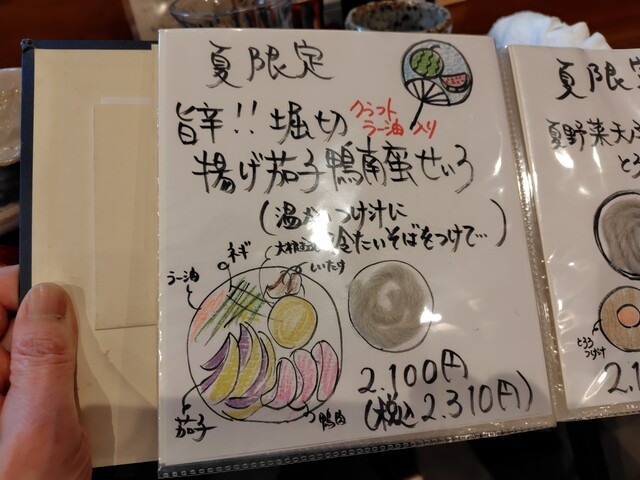 夏限定
旨辛!! 堀切 クラフトラー油入り
揚げ茄子鴨南蛮せいろ
(温かいつけ汁に
冷たいそばをつけて…)
ネギ
しいたけ
ラー油
茄子
鴨肉
2.100円
(税込2.310円)
夏限定
夏野菜天
とろ
とろろ
つけ汁
2.1